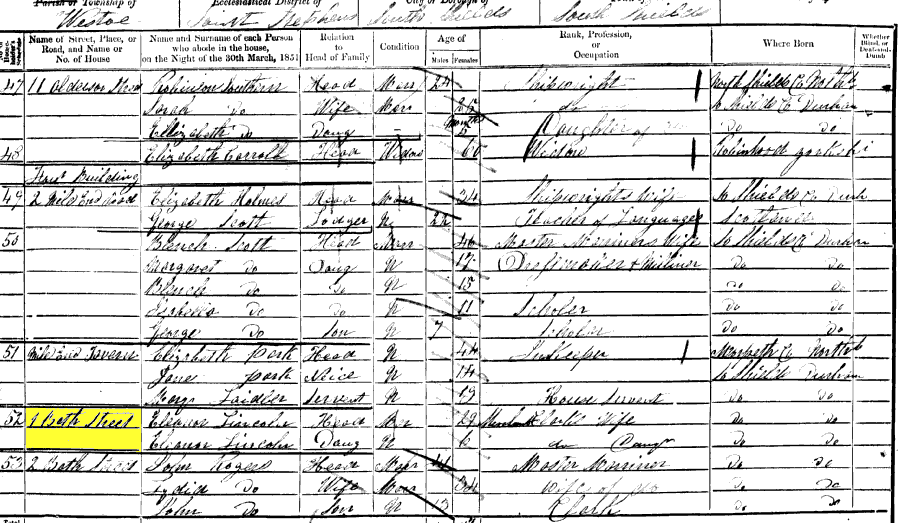 Parish or Township of
Ecclesiastical District of
City or Borough of
Westoe Saint Stephens South Shields South Shields
Name of Street, Place, or Road, and Name or No. of House
Name and Surname of each Person who abode in the house, on the Night of the 30th March, 1851
Relation to Head of Family
Condition
Age of
Males Females
Rank, Profession, or Occupation
Where Born
Whether Blind, or Deaf-and-Dumb
47 11 Alderson Street Robinson Southern Head Marr 24 Shipwright North Shields
Sarah Do Wife Marr So Shields Co Durham
Elizabeth Do Daug Daughter of Do Do
48 Elizabeth Head Widow 60 Widow
Building
49 2 Mile End Road Elizabeth Holmes Head Marr 34 Shipwrights Wife So Shields Co Durh
George Scott Lodger U Teacher of Languages Scotland
50 Blench Scott Head Marr 46 Master Mariners Wife So Shields Co Durham
Margaret Do Daug U 17 Dressmaker & Milliner Do Do
Blench Do Do U 15 Do Do
Isabella Do Do U 11 Scholar Do Do
George Do Son U 7 Scholar Do Do
51 Mile End Tavern Elizabeth Park Head U 44 Innkeeper Morpeth Co
Jane Park Niece U 14 So Shields Durham
Laidler Servant U 19 House Servant Do Do
52 1 Bath Street Eleanor Lincoln Head Mar 29 Clerks Wife Do Do
Eleanor Lincoln Daug U 6 do Daugr Do Do
53 2 Bath Street John Rogers Head Marr Master Mariner Do Do
Lydia Do Wife Marr 34 Wife of Do Do Do
John Do Son U 13 Clerk Do Do